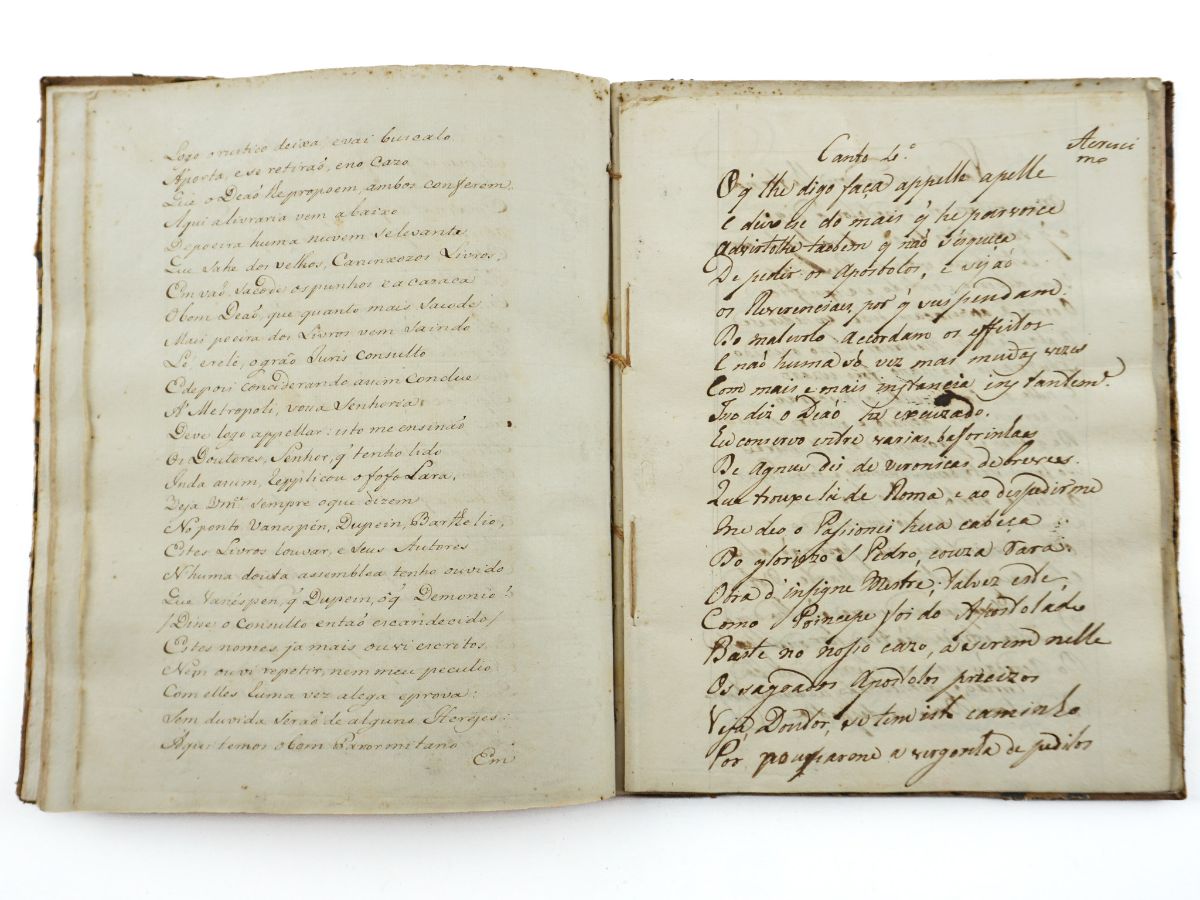 Logo o rustico deixa, e vai buscalo
A'porta, e se retiraõ, e no Cazo
Que o Deaõ lhe propoem, ambos conferem,
Aqui a livraria vem abaixo
De poeira huma nuvem se levanta
Que sahe dos velhos, Carunxozos Livros,
Em vaõ sacode os punhos e a cazaca
O bom Deaõ, que quanto mais sacode
Mais poeira dos Livros vem saindo
Lê e relê, o graõ Juris Consulto
E depois considerando asim conclue
A' Metropoli, vossa Senhoria
Deve logo appellar: isto me ensinaõ
Os Doutores, Senhor, q' tenho lido
Inda asim, Repplicou o fofo Lara,
Veja Vm.ᵉ sempre o que dizem
No ponto Vanespén, Dupein, Barthelio,
Estes Livros louvar, e seus Autores
N'huma douta assemblea tenho ouvido
Que Vanéspen, q' Dupein, ó q' Demonio?
/ Disse o Consulto entaõ escandecido /
Estes nomes ja mais ouvi escritos
Nem ouvi repetir, nem meu peculio
Com elles huma vez alega e prova:
Sem duvida seraõ de alguns Herejes:
Aqui temos o bom Panormitano
Em
Canto 4.º
Acresci
mo
O q̃ lhe digo faça appelle apelle
E dixese do mais q̃ he parvoice
Advirtolhe taobem q̃ naõ s'esqueça
De pedir os Apostolos, e sejaõ
os Reverenciaes, por q̃ suspendam
Do malvolo Accordam os effeitos
E naõ huma só vez mas muitas vezes
Com mais e mais instancia instantem.ᵉ
Iso diz o Deaõ he excuzado.
Eu conservo entre varias baforinhas
De Agnus deis de veronicas de breves
Que trouxe lá de Roma e ao despedirme
Me deo o Pasionei hua cabeça
Do gloriozo S Pedro, couza rara
Obra d'insigne Mestre, talvez este,
Como Principe foi do Apostolado
Baste no nosso cazo, a serem nelle
Os sagrados Apostolos precizos
Veja, Doutor, se tem isto caminho
Por pouparme a vergonha de pedilos